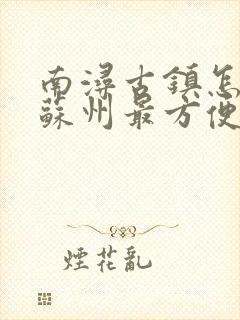 南潯古鎮怎
蘇州最方便
煙花亂